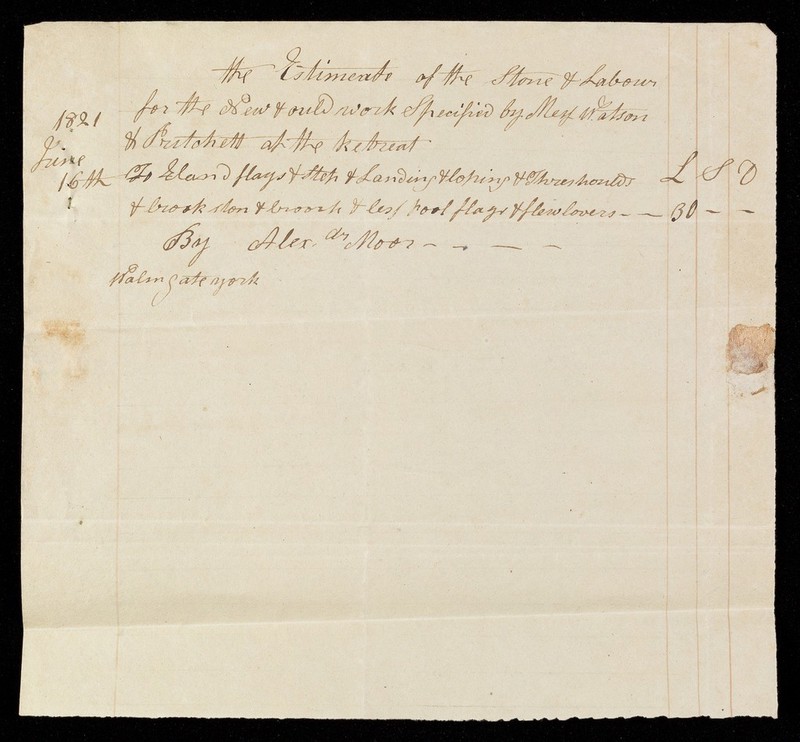 the Estimeate of the Stone & Labour
1821 for the New & ould work Specified by Mess Watson
& Pritchett at the Retreat
June
16th To Eland flags & Step & Landing & Coping & Threshoulds L S D
& brook ston & & less pool flags & flew Covers - - 30 - -
By Alex.dr Moor - - - -
Walmgate york